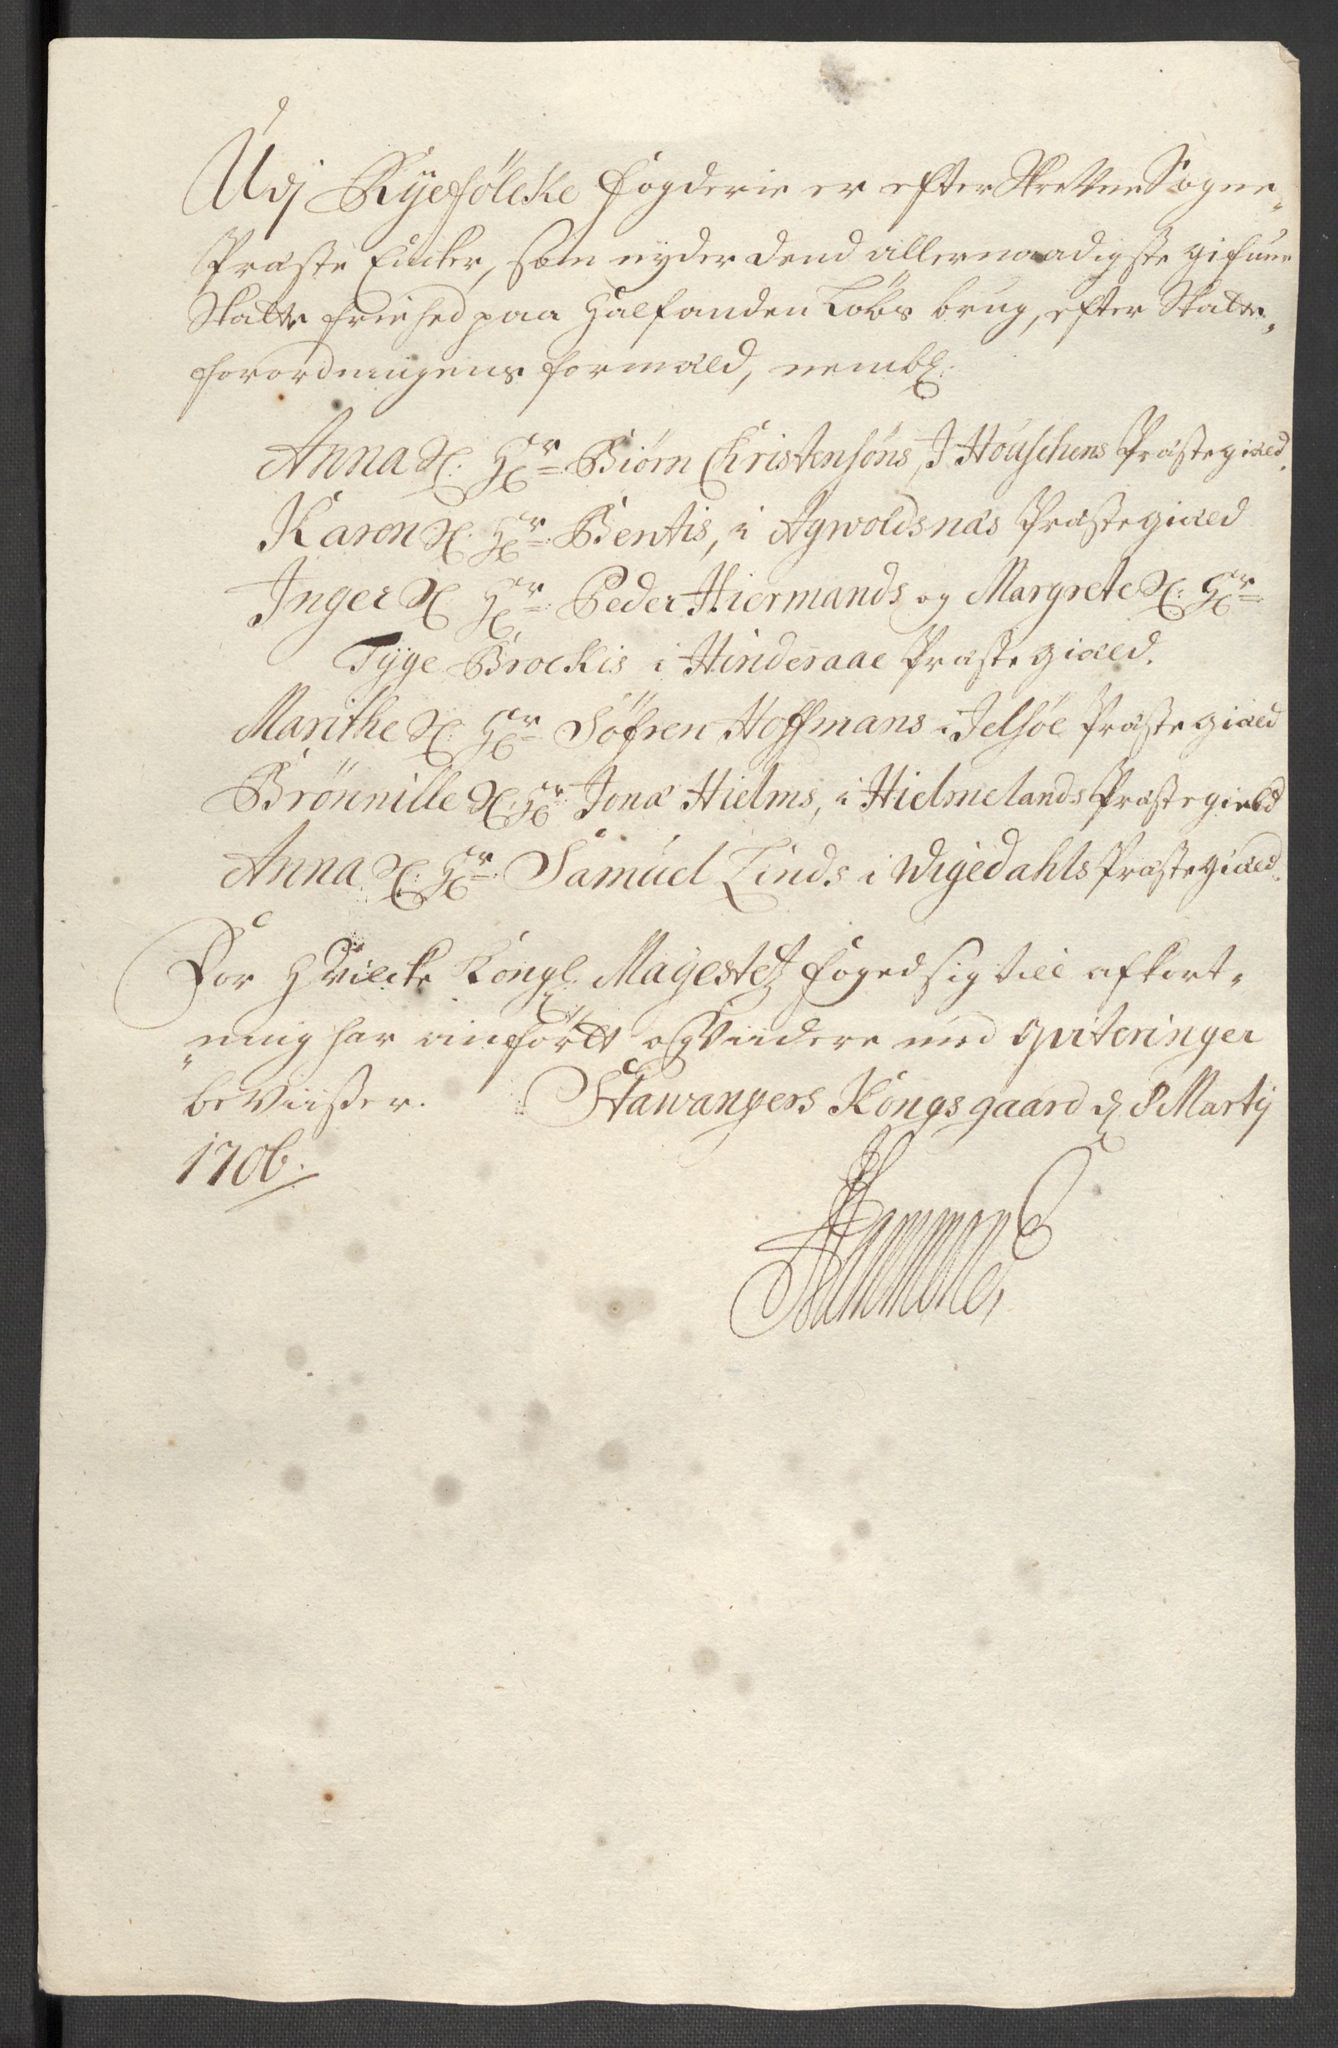 Udj Ryefölcke fogderie er efterskrefne Sogne-
Præste Encker, som nyder dend allernaadigste gifune
Skatte frihed paa Halfanden Löbs brug, efter Skatte-
forordningens formæld, nembl:
Anna Sl: Hr: Biörn Christensöns, I Houschens Præstegiæld.
Karen Sl: Hr: Bentis, i Agwoldsnæs Præstegiæld
Inger Sl Hr: Peder Hiermands og Margrete Sl: Hr:
Tyge Brockis i Hinderaae Præstegiæld.
Marithe Sl: Hr: Söfren Hoffmans i Jelsöe Præstegiæld
Brönnille Sl: Hr: Jonæ Hielms, i Hielmelands Præstegield
Anna Sl: Hr: Samuel Linds i Wigedahls Præstegiæld.
For hvilcke Kongl: Mayestetz foged sig till afkort-
ning har anfört og Viidere med qviteringer
beviisser. Stawangers Kongsgaard d 8 Martij
1706.